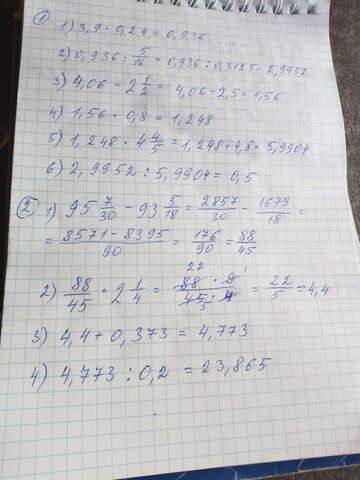 ① 1) 3,9 · 0,24 = 0,936
2) 0,936 : 5/16 = 0,936 : 0,3125 = 2,9952
3) 4,06 - 2 1/2 = 4,06 - 2,5 = 1,56
4) 1,56 · 0,8 = 1,248
5) 1,248 · 4 4/5 = 1,248 · 4,8 = 5,9904
6) 2,9952 : 5,9904 = 0,5
② 1) 95 7/30 - 93 5/18 = 2857/30 - 1679/18 =
= 8571-8395/90 = 176/90 = 88/45
2) 88/45 · 2 1/4 = 22 88 · 9 1/45 5 · 4 = 22/5 = 4,4
3) 4,4 + 0,373 = 4,773
4) 4,773 : 0,2 = 23,865